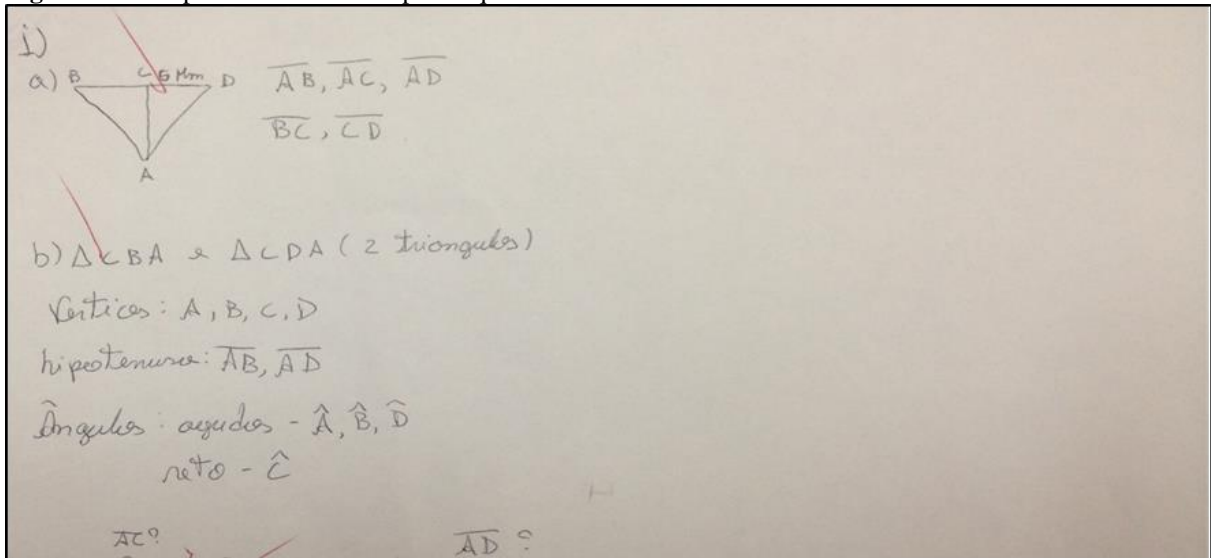 1)
a) B C 5 Km D A
AB, AC, AD
BC, CD
b) Δ CBA e Δ CDA (2 triangulos)
Vertices: A, B, C, D
hipotenusa: AB, AD
Ângulos: agudos - Â, B̂, D̂
reto - Ĉ
AC? AD?